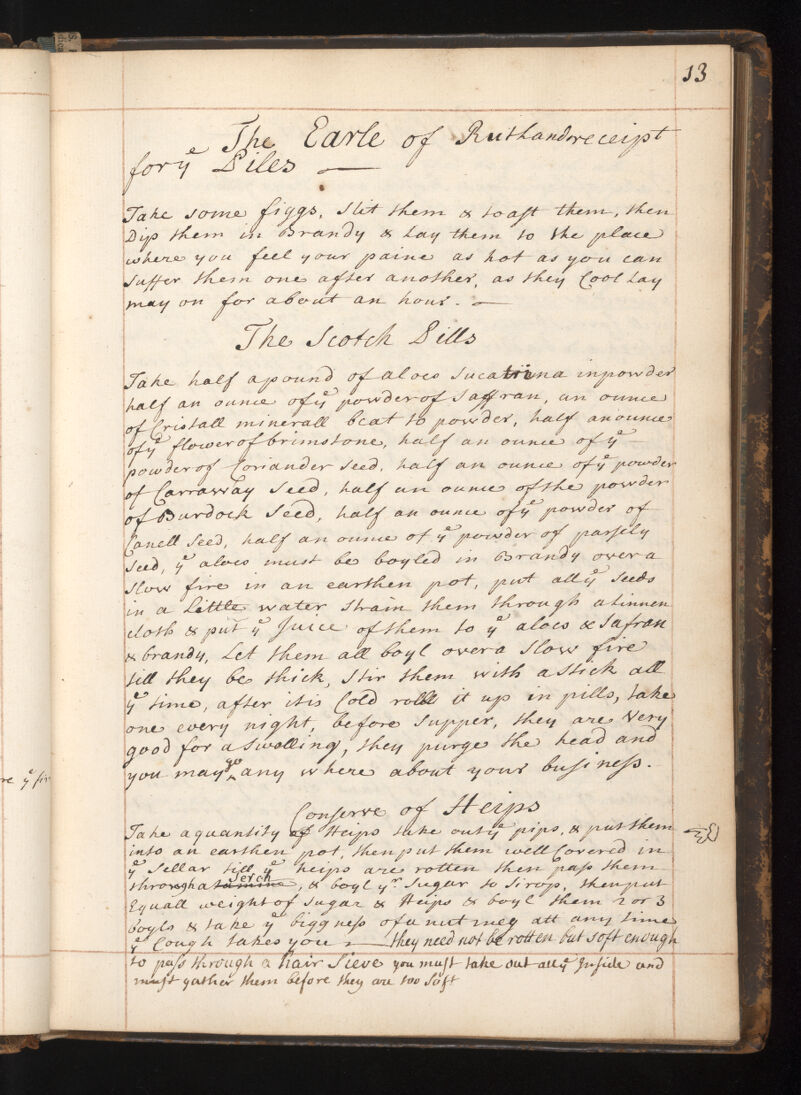 13
The Earle of Ruthands receipt
for yᵉ Piles
Take some figgs, slit them & toast them, then
Dip them in Brandy & Lay them to the place
where you feel your paine as hot as you can
suffer them one after another, as they Cool Lay
may on for about an hour.
The Scotch Pills
Take half a pound of aloes sucatrina in powder
half an ounce of yᵉ powder of saffran, an ounce
of Cristall minerall beat to powder, half an ounce
of yᵉ flower of brimstone, half an ounce of yᵉ
powder of Coriander seed, half an ounce of yᵉ powder
of Carraway seed, half an ounce of the powder
of Burdock seed, half an ounce of yᵉ powder of
Canell seed, half an ounce of yᵉ powder of parsely
seed, yᵉ aloes must be boyled in Brandy over a
slow fire in an earthen pot, put all yᵉ seeds
in a Little water strain them through a linnen
cloth & put yᵉ Juice of them to yᵉ aloes & safran
& brandy, Let them all boyl over a slow fire
till they be thick, stir them with a stick all
yᵉ time, after it is Cold roll it up in pills, take
one every night, before supper, they are Very
good for a swelling, they purge the head and
you may go any where about your business.
Conserve of Heips
Take a quantity of Heips take out yᵉ pips, & put them
into an earthen pot, then put them well Covered in
yᵉ sellar till yᵉ heips are rotten then pass them
through a tamine serch, & boyl yʳ sugar to sirop, then put
Equall weight of sugar & Heips & boyl them 2 or 3
boyls & take yᵉ biggness of a nutmeg att any time
yᵉ Cough takes you they need not be rotten but soft enough
to pass through a hair sieve you must take out all yᵉ Inside and
must gather them before they are too soft